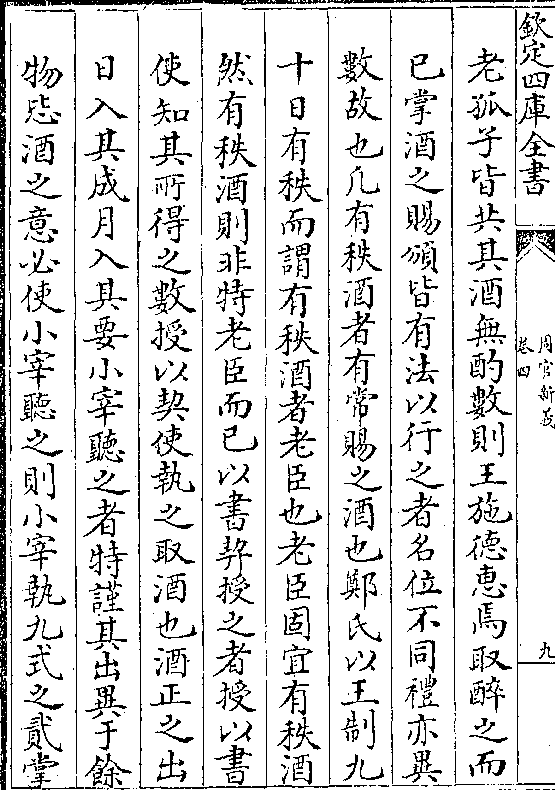 欽定四庫全書
周官新義
卷四
九
老孤子皆共其酒無酌數則王施德惠焉取醉之而
已掌酒之賜頒皆有法以行之者名位不同禮亦異
數故也凡有秩酒者有常賜之酒也鄭氏以王制九
十日有秩而謂有秩酒者老臣也老臣固宜有秩酒
然有秩酒則非特老臣而已以書契授之者授以書
使知其所得之數授以契使執之取酒也酒正之出
日入其成月入其要小宰聽之者特謹其出異于餘
物毖酒之意必使小宰聽之則小宰執九式之貳掌